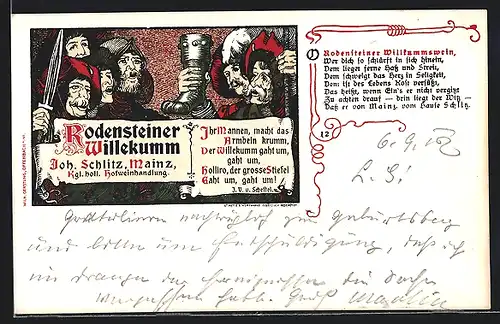 Rodensteiner
Willekumm
Joh. Schlitz, Mainz,
Kgl. holl. Hofweinhandlung.
Ihr Mannen, macht das
Ärmbein krumm,
Der Willekumm gaht um,
gaht um,
Holliro, der grosse Stiefel
Gaht um, gaht um!
J. V. v. Scheffel.
O Rodensteiner Willkummswein,
Wer dich so schlürft in sich hinein,
Dem lieger ferne Haß und Streit,
Dem schwelgt das Herz in Seligkeit,
Dem ist des Lebens Kost versüßt,
Das heißt, wenn Ein's er nicht vergißt
Zu achten drauf — drin liegt der Witz —
Daß er von Mainz, vom Hause Schlitz.
12
6. 9. 02
L. G!
nachträglich zum Geburtstag
und bitte um Entschuldigung, daß ich
im Drange der Ereignisse die Sache
vergessen habe. Gruß